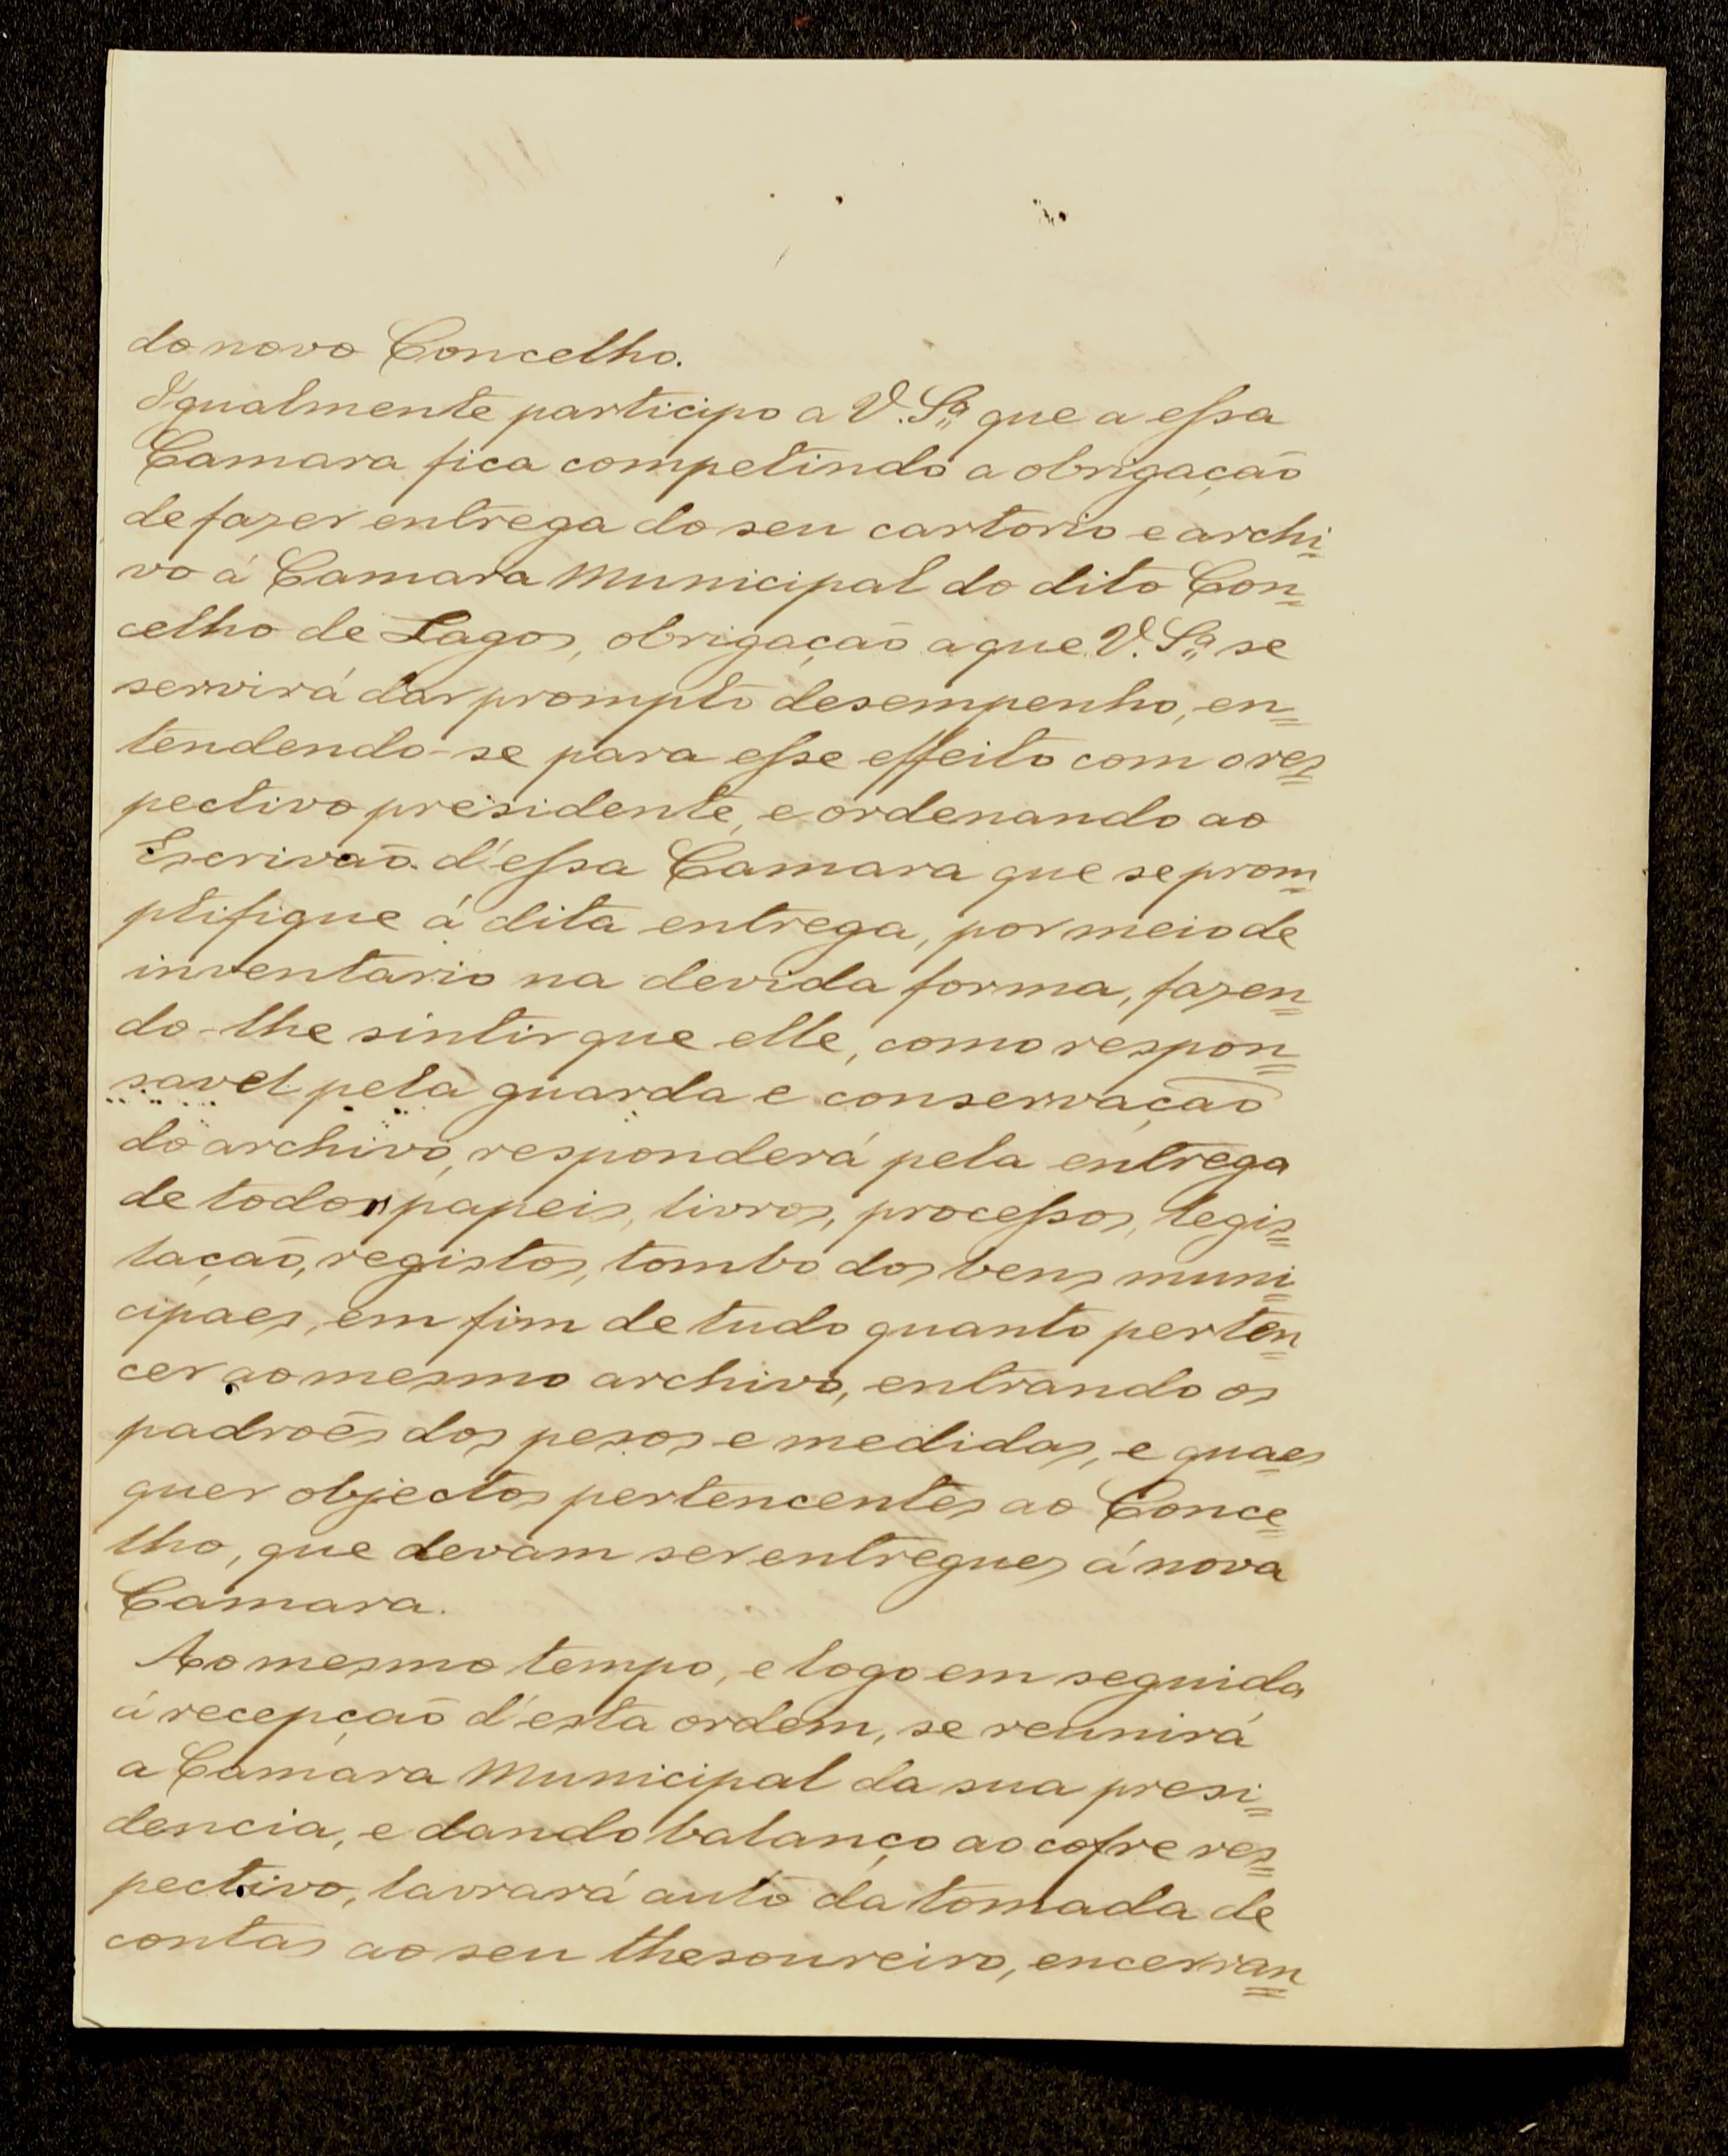 do novo Concelho.
Igualmente participo a V. Sª que a essa
Camara fica competindo a obrigação
de fazer entrega do seu cartorio e archi=
vo á Camara Municipal do dito Con=
celho de Lagos, obrigação a que V. Sª se
servirá dar prompto desempenho, en=
tendendo-se para esse effeito com o res=
pectivo presidente, e ordenando ao
Escrivão d'essa Camara que se prom=
ptifique á dita entrega, por meio de
inventario na devida forma, fazen=
do-lhe sintir que elle, como respon=
savel pela guarda e conservação
do archivo, responderá pela entrega
de todos papeis, livros, processos, legis=
lação, registos, tombo dos bens muni=
cipaes, em fim de tudo quanto perten=
cer ao mesmo archivo, entrando os
padrões dos pesos e medidas, e quaes=
quer objectos pertencentes ao Conce=
lho, que devam ser entregues á nova
Camara.
Ao mesmo tempo, e logo em seguida
á recepção d'esta ordem, se reunirá
a Camara Municipal da sua presi=
dencia, e dando balanço ao cofre res=
pectivo, lavrará auto da tomada de
contas ao seu thesoureiro, encerran=